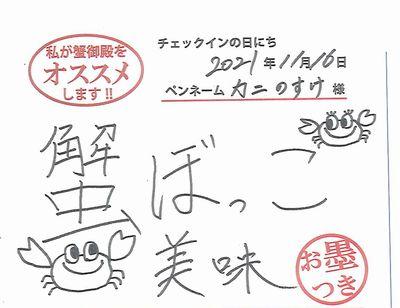 私が蟹御殿を
オススメ
します!!
チェックインの日にち
2021年11月16日
ペンネーム カニのすけ 様
蟹ぼっこ
美味
お墨
つき